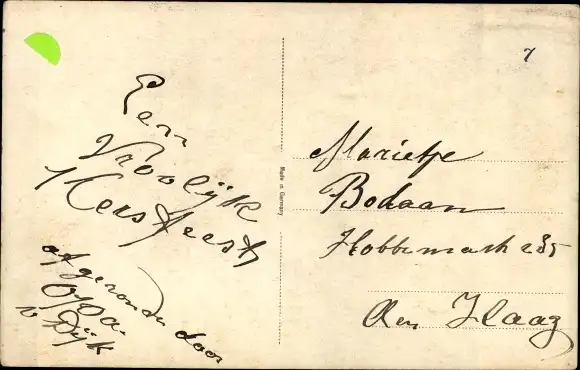 Een
Vroolijk
Kerstfeest
afgezonden door
Opa
v Dijk
7
Made in Germany
Marietje
Bodaan
Hobbemastr 235
Den Haag